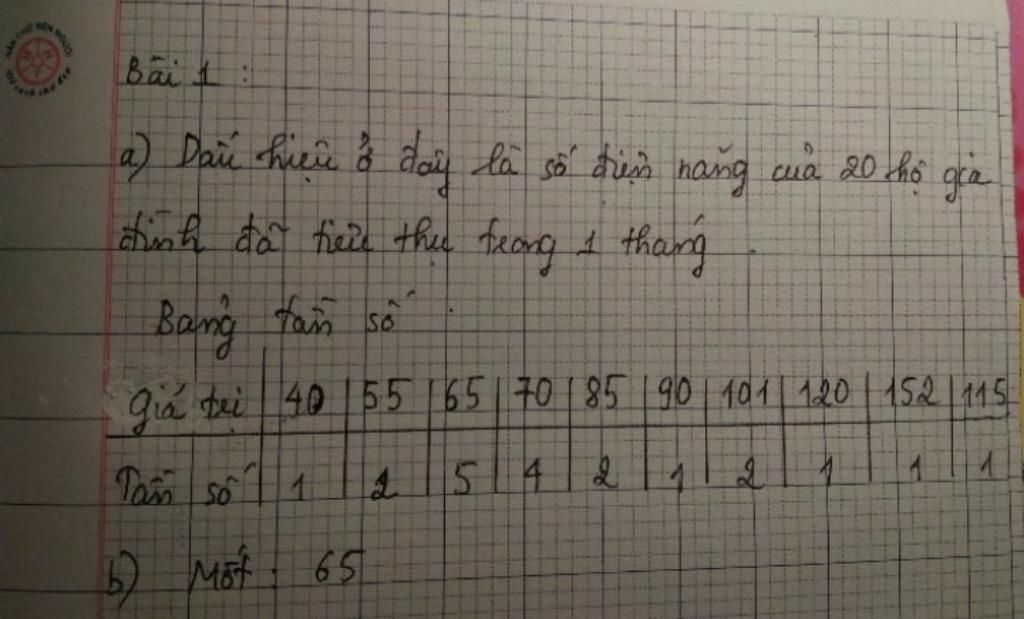 NẮN CHỮ RÈN NGƯỜI
Bài 1 :
a) Dấu hiệu ở đây là số điện năng của 20 hộ gia
đình đã tiêu thụ trong 1 tháng .
Bảng tần số .
Giá trị | 40 | 55 | 65 | 70 | 85 | 90 | 101 | 120 | 152 | 115
Tần số | 1 | 2 | 5 | 4 | 2 | 1 | 2 | 1 | 1 | 1
b) Mốt : 65